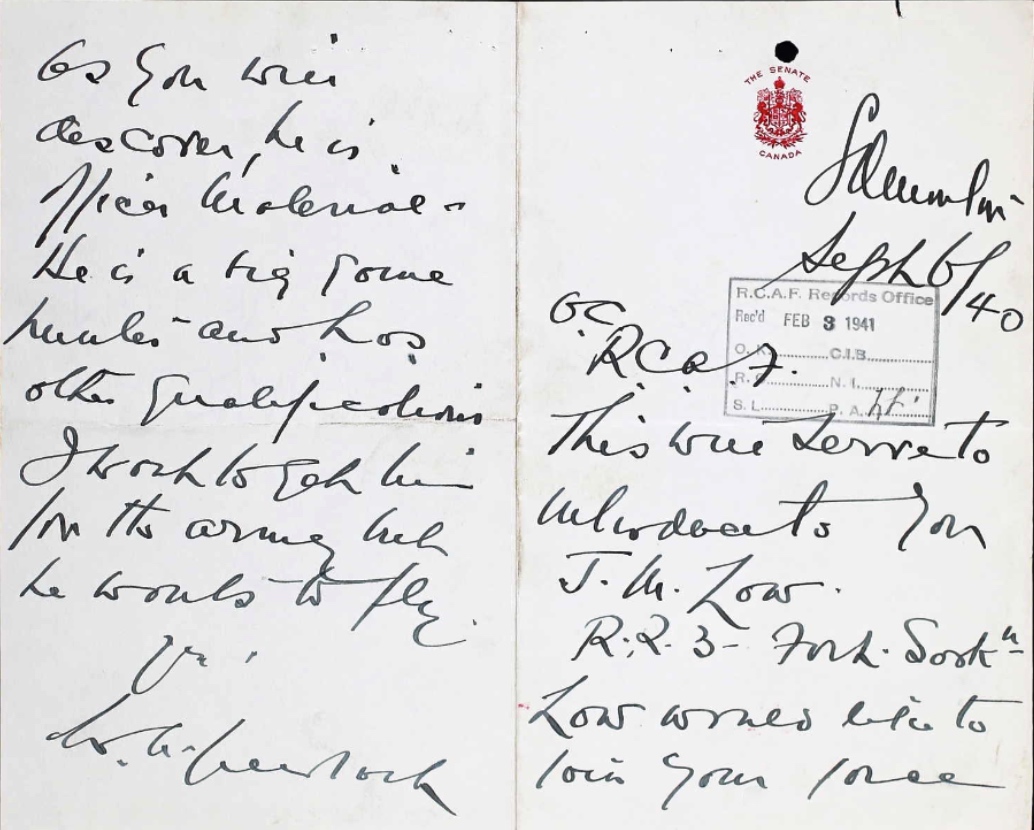 THE SENATE
CANADA
Edmonton
Sept 6/40
R.C.A.F. Records Office
Rec'd FEB 3 1941
O. K. C.I.B.
R. N. I.
S. L. P. A.
OC
R.C.A.F.
This will serve to
introduce to you
J. M. Low.
R.R. 3 - Fort. Sask'n
Low would like to
join your force
As you will
discover, he is
officer material -
He is a big game
hunter and has
other qualifications
I want to get him
for the army but
he wants to fly.
Yrs.
W. A. Griesbach